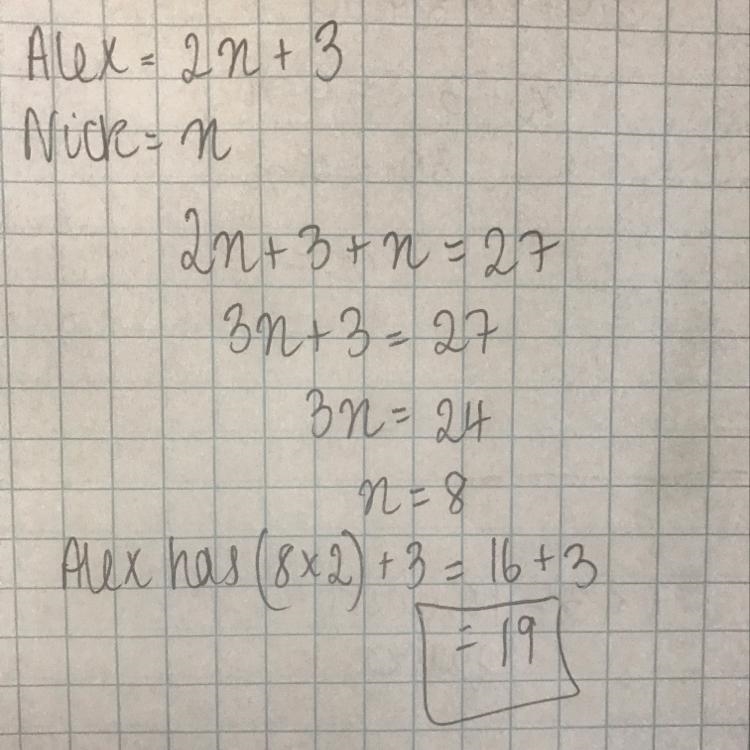 Alex = 2n + 3
Nick = n
2n + 3 + n = 27
3n + 3 = 27
3n = 24
n = 8
Alex has (8 x 2) + 3 = 16 + 3
= 19